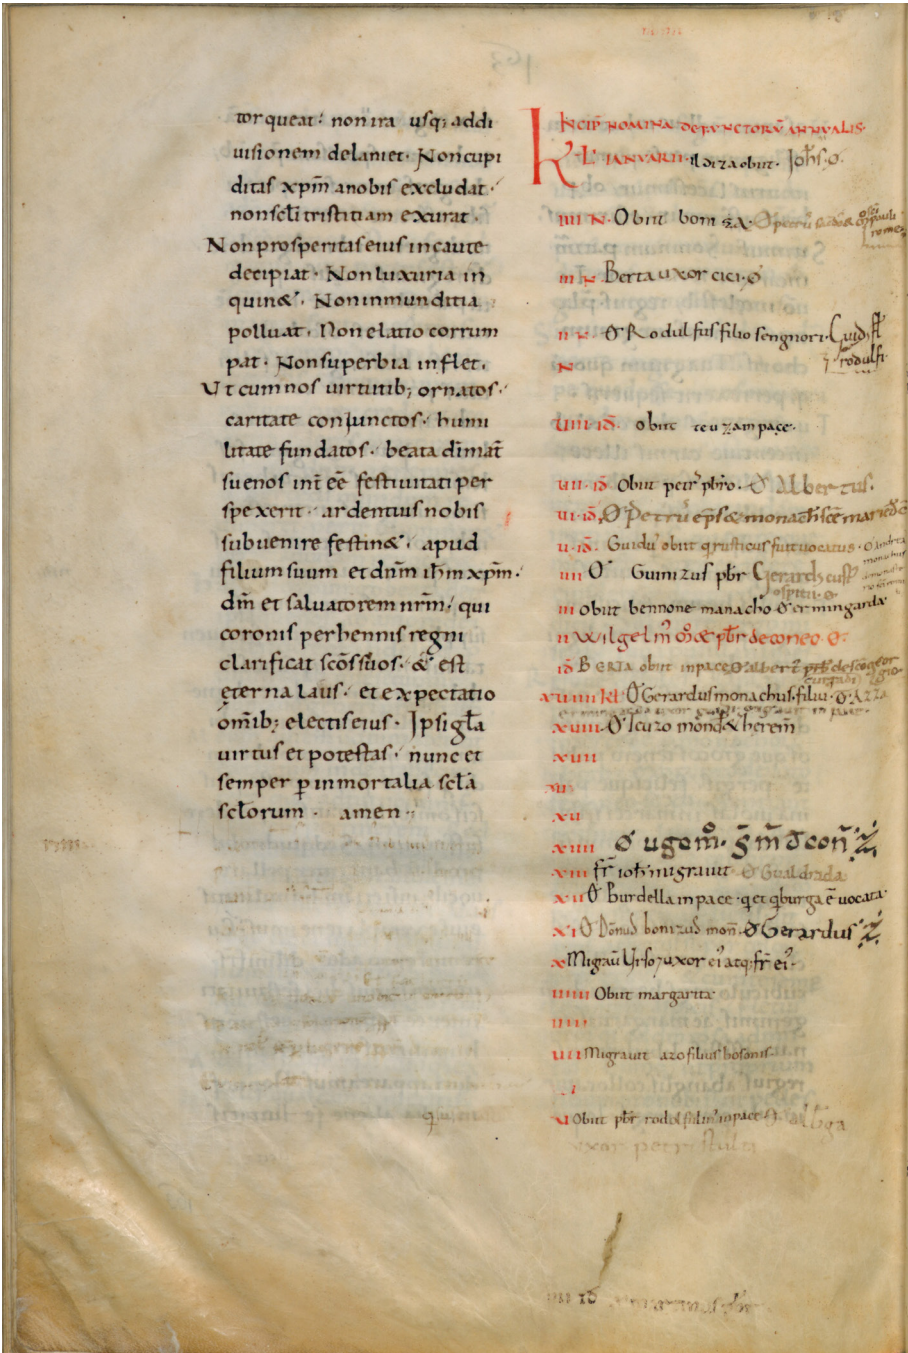 torqueat. non ira usq; ad di
uisionem delaniet. Non cupi
ditas xp̄m a nobis excludat.
non sc̄li tristitiam exurat.
Non prosperitas eius incaute
decipiat. Non luxuria in
quin&. Non inmunditia
polluat. Non elatio corrum
pat. Non superbia inflet.
Ut cum nos uirtutib; ornatos.
caritate conjunctos. humi
litate fundatos. beata dī mat̄
su enos int̄ eē festiuitati per
spexerit. ardentius nobis
subuenire festin&. apud
filium suum et dn̄m ih̄m xp̄m.
dm̄ et saluatorem nr̄m. qui
coronis perhennis regni
clarificat sc̄os suos. & est
eterna laus. et expectatio
om̄ib; electis eius. Ipsi gl̄a
uirtus et potestas. nunc et
semper p̄ inmortalia scl̄a
scl̄orum. amen.
INCIP̄ NOMINA DEFUNCTORŪ ANNUALIS.
KL̄ IANUARII. ildiza obiit. Joh̄s. o.
IIII N. Obiit boniza. O petrus
III N Berta uxor cici. o
II N. O Rodulfus filio sengnori. Guid
rodulfi
N
UIII. ID̄ obiit teuzam pace.
UII. ID̄ Obiit petr' pb̄ro. O Albertus.
UI. ID̄. O Petrū ep̄s & monach̄ sc̄e marie
U. ID̄. Guidu' obiit q rusticus fuit uocatus. O Andrea
IIII O Guinizus pb̄r Gerards
III obiit bennone manacho O ermingarda
II Wilgelm̄ & pb̄r
ID̄ Berta obiit in pace O albert
XUIIII KL O Gerardus monachus. filiu. O Azza
XUIII O Teuzo mon & herem̄
XUII
XUI
XU
XIIII
XIII fr̄ ioh̄ migrauit O Gualdrada
XII O Burdella in pace. q et q̄burga ē uocata
XI O Donnud bonizud mon. O Gerardus
X Migrau Urso 7 uxor ei' atq; fr̄ ei'.
UIIII Obiit margarita
UIII
UII Migrauit azo filius bosonis.
UI
U Obiit pb̄r rodulfus in pace O
uxor petri
ID